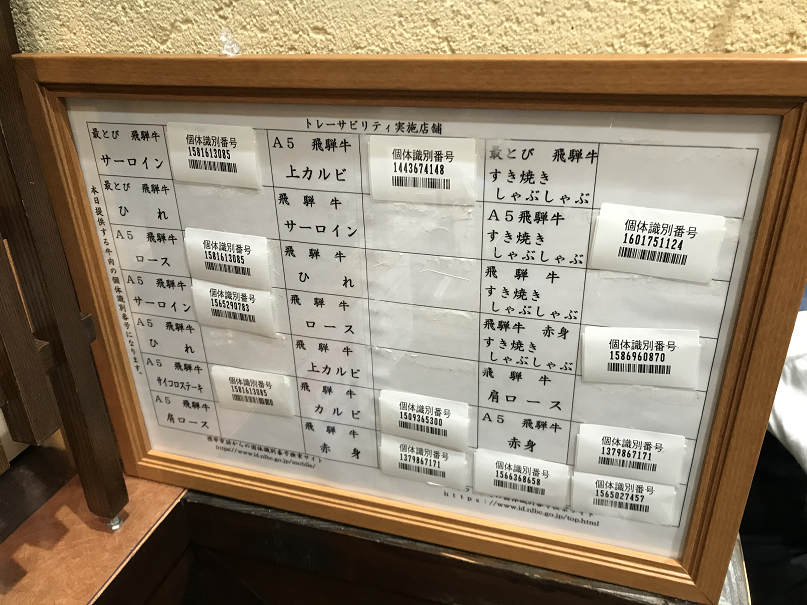 トレーサビリティ実施店舗
本日提供する牛肉の個体識別番号になります。
最とび 飛騨牛
サーロイン
個体識別番号
1581613085
最とび 飛騨牛
ひれ
A5 飛騨牛
ロース
個体識別番号
1581613085
A5 飛騨牛
サーロイン
個体識別番号
1565290783
A5 飛騨牛
ひれ
A5 飛騨牛
サイコロステーキ
個体識別番号
1581613085
A5 飛騨牛
肩ロース
A5 飛騨牛
上カルビ
個体識別番号
1443674148
飛騨牛
サーロイン
飛騨牛
ひれ
飛騨牛
ロース
飛騨牛
上カルビ
飛騨牛
カルビ
個体識別番号
1509365300
飛騨牛
赤身
個体識別番号
1379867171
個体識別番号
1566368658
最とび 飛騨牛
すき焼き
しゃぶしゃぶ
A5飛騨牛
すき焼き
しゃぶしゃぶ
個体識別番号
1601751124
飛騨牛
すき焼き
しゃぶしゃぶ
飛騨牛 赤身
すき焼き
しゃぶしゃぶ
個体識別番号
1586960870
飛騨牛
肩ロース
A5 飛騨牛
赤身
個体識別番号
1379867171
個体識別番号
1565027457
携帯電話からの個体識別番号検索サイト
https://www.id.nlbc.go.jp/mobile/
https://www.id.nlbc.go.jp/top.html